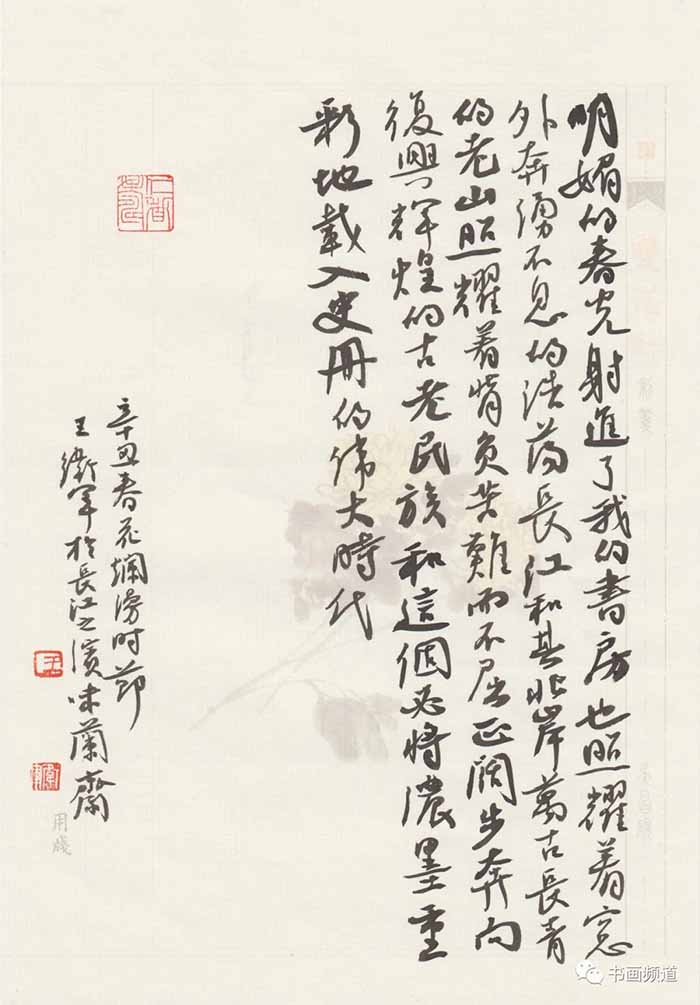 明媚的春光射進了我的書房也照耀着窓
外奔湧不息的浩蕩長江和其北岸萬古長青
的老山照耀着背負苦難而不屈正闊步奔向
復興輝煌的古老民族和這個必將濃墨重
彩地載入史冊的偉大時代
辛丑春花爛漫时節
王衛軍於長江之濱味蘭齋
用箋
书画频道